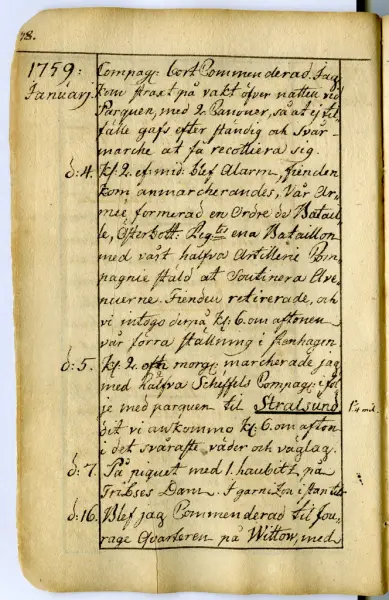 28.
1759: Compag: bort Commenderad. Jag
Januarij. kom straxt på vakt öfver natten vid
Parquen, med 2 Canoner, så at ej til
fälle gafs efter ständig och svår
marche at få recolliera sig.
d: 4. kl: 2. ef: mid: blef Alarm, fienden
kom anmarcherandes, Vår Ar-
mée formerad en Ordre de Batail-
le, Österbott: Reg:tes ena Bataillon
med vårt halfva Artillerie Com-
pagnie stäld at Soutinera Ave-
nuerne. Fienden retirerade, och
vi intogo derpå kl: 6. om aftonen
vår förra ställning i stenhagen
d: 5. kl: 2. morg: marcherade jag
med halfva Scheffels Compag: i föl
je med parquen til Stralsund 1¼ mil.
dit vi ankommo kl: 6. om afton
i det svåraste väder och väglag.
d: 7. På piquet med 1. haubitz, på
Tribses Dam. I garnizon i stan til
d: 16. Blef jag Commenderad til Fou-
rage Quarteren på Wittow, med